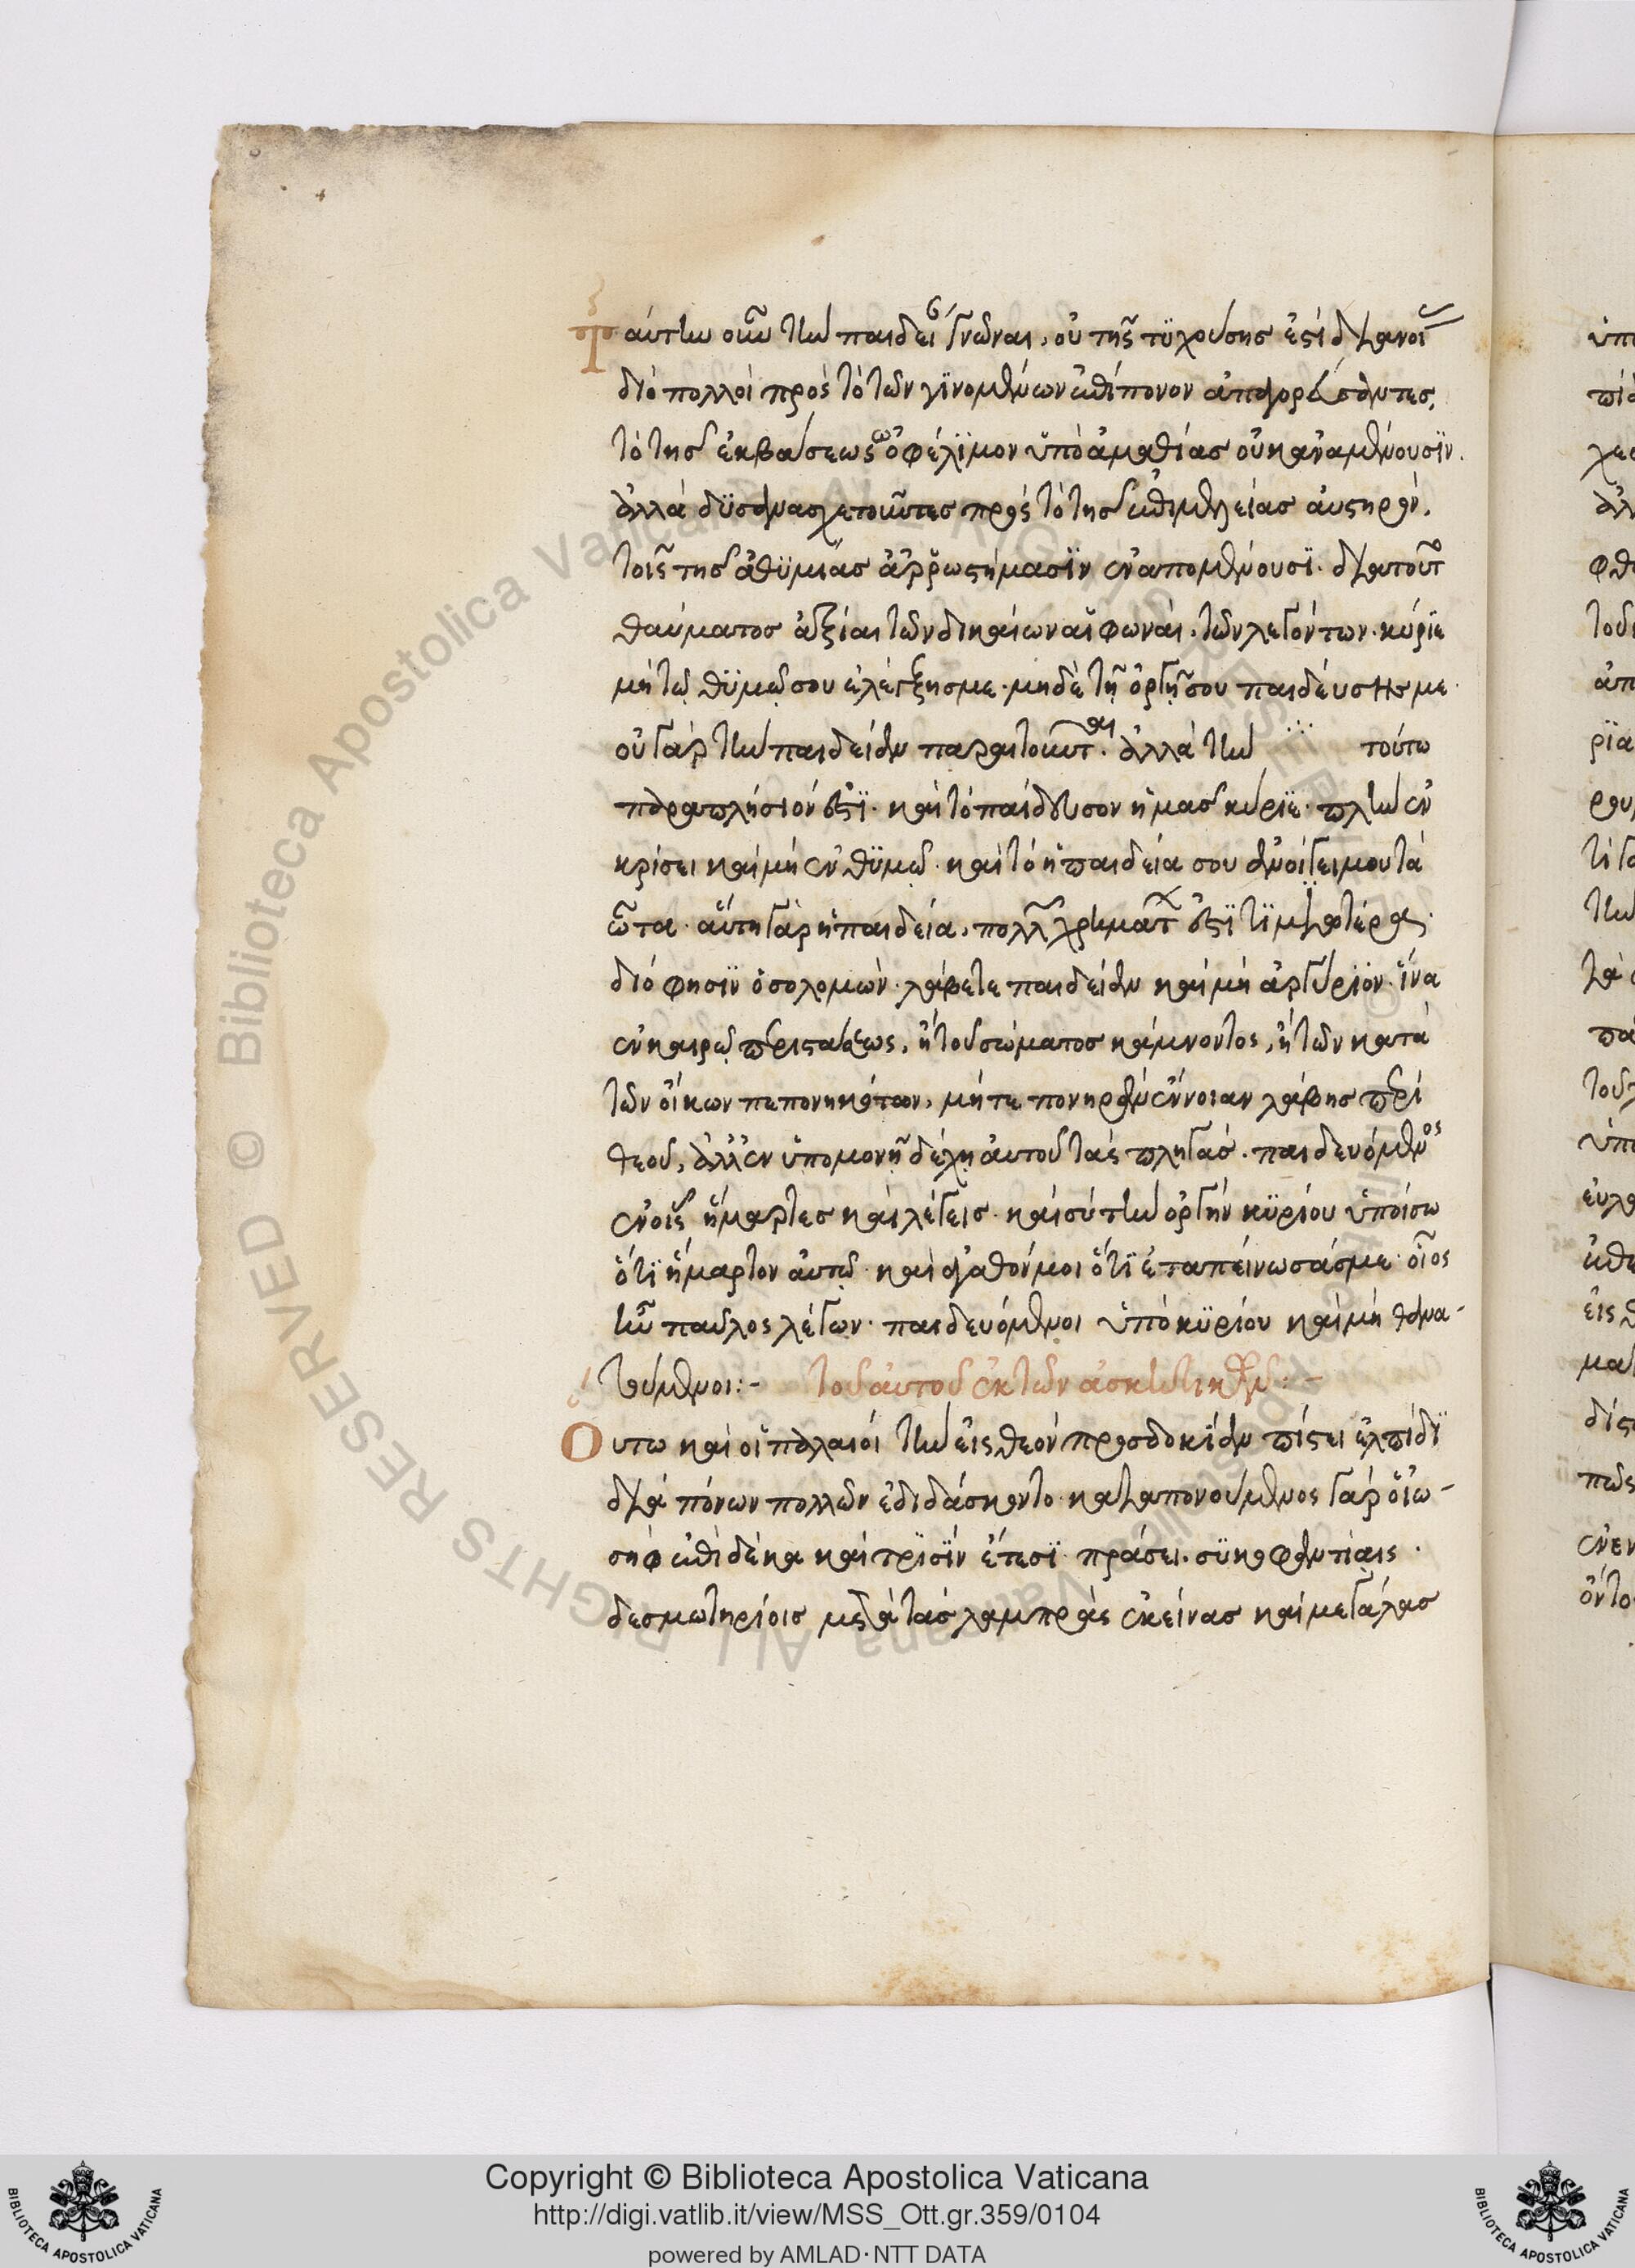 Ταύτην οὖν τὴν παιδεί γνῶναι, οὐ τῆς τϋχούσης ἐστὶ διανοί
διὸ πολλοὶ πρὸς τὸ τῶν γϊνομένων ἐπίπονον ἀπαγορεύσαντες,
τὸ τῆς ἐκβάσεως ὀφέλϊμον ὑπὸ ἀμαθίας οὐκ ἀναμένουσϊν.
ἀλλὰ δϋσανασχετοῦντες πρὸς τὸ τῆς ἐπιμελείας αὐστηρόν.
τοῖς τῆς ἀθϋμίας ἀρρωστήμασϊν ἐναπομένουσϊ. διὰ τοῦτ
θαύματος ἀξίαι τῶν δικαίων αἱ φωναὶ. τῶν λεγόντων. κύρϊε
μὴ τῷ θϋμῷ σου ἐλέγξῃς με. μηδὲ τῇ ὀργῇ σου παιδεύσῃς με.
οὐ γὰρ τὴν παιδείαν παραιτοῦνται. ἀλλὰ τὴν τούτω
παραπλήσιόν ἐστϊ. καὶ τὸ παίδευσον ἡμᾶς κύριϊε. πλὴν ἐν
κρίσει καὶ μὴ ἐν θϋμῷ. καὶ τὸ ἡ παιδεία σου ἀνοίγει μου τὰ
ὦτα. αὕτη γὰρ ἡ παιδεία, πολλ χρημάτ ἐστϊ τϊμιωτέρα.
διό φησϊν ὁ σολομών. λάβετε παιδείαν καὶ μὴ ἀργύρϊον. ἵνα
ἐν καιρῷ περιστάσεως, ἢ τοῦ σώματος κάμνοντος, ἢ τῶν κατὰ
τῶν οἴκων πεπονηκότων, μήτε πονηρὰν ἔννοιαν λάβῃς περὶ
θεοῦ, ἀλλ' ἐν ὑπομονῇ δέχῃ αὐτοῦ τὰς πληγάς. παιδευόμενος
ἐν οἷς ἥμαρτες καὶ λέγεις. καὶ σὺ τὴν ὀργὴν κϋρίου ὑποίσω
ὅτϊ ἥμαρτον αὐτῷ. καὶ ἀγαθόν μοι ὅτϊ ἐταπείνωσάς με. οἷος
ἦν παῦλος λέγων. παιδευόμενοι ὑπὸ κϋρίου καὶ μὴ θανα-
τούμενοι:- τοῦ αὐτοῦ ἐκ τῶν ἀσκητικῶν:-
Οὕτω καὶ οἱ παλαιοὶ τὴν εἰς θεὸν προσδοκίαν πίστει ἐλπίδϊ
διὰ πόνων πολλῶν ἐδιδάσκοντο. καταπονούμενος γὰρ ὁ ἰω-
σὴφ ἐπὶ δέκα καὶ τρϊσϊν ἔτεσϊ πράσει. σϋκοφαντίαις.
δεσμωτηρίοις μετὰ τὰς λαμπρὰς ἐκείνας καὶ μεγάλας
Copyright © Biblioteca Apostolica Vaticana
http://digi.vatlib.it/view/MSS_Ott.gr.359/0104
powered by AMLAD·NTT DATA